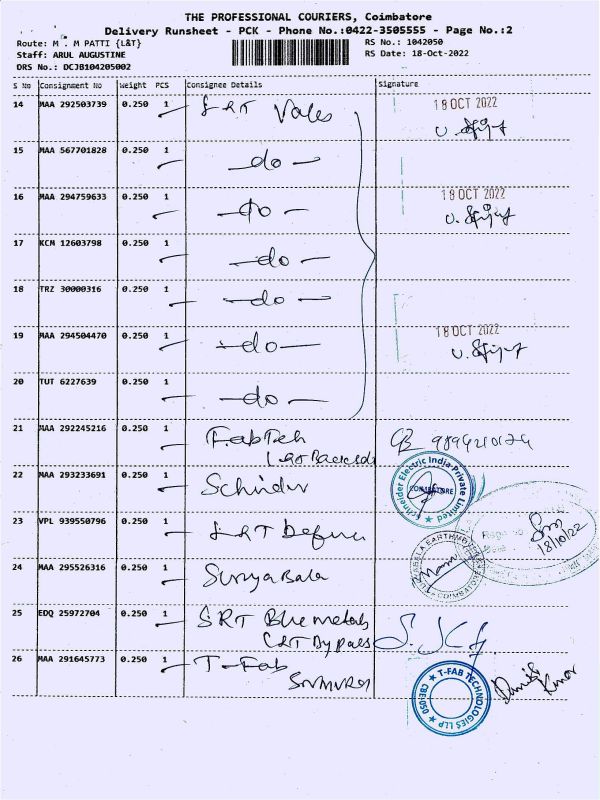 THE PROFESSIONAL COURIERS, Coimbatore
Delivery Runsheet - PCK - Phone No.:0422-3505555 - Page No.:2
Route: M . M PATTI {L&T}
RS No.: 1042050
Staff: ARUL AUGUSTINE
RS Date: 18-Oct-2022
DRS No.: DCJB104205002
S No Consignment No Weight PCS Consignee Details Signature
14 MAA 292503739 0.250 1 Vales 18 OCT 2022
15 MAA 567701828 0.250 1 -do-
16 MAA 294759633 0.250 1 -do- 18 OCT 2022
17 KCM 12603798 0.250 1 -do-
18 TRZ 30000316 0.250 1 -do-
19 MAA 294504470 0.250 1 -do- 18 OCT 2022
20 TUT 6227639 0.250 1 -do-
21 MAA 292245216 0.250 1 FabTeh
22 MAA 293233691 0.250 1
Schneider Electric India Private Limited
COIMBATORE
23 VPL 939550796 0.250 1
18/10/22
24 MAA 295526316 0.250 1 Surya Bala
COIMBATORE
25 EDQ 25972704 0.250 1 Blue metals
26 MAA 291645773 0.250 1 T-Fab
T-FAB TECHNOLOGIES LLP
CBE-050